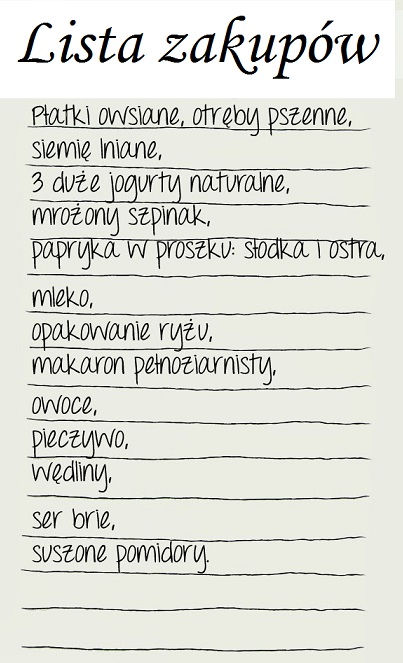 Lista zakupów
Płatki owsiane, otręby pszenne,
siemię lniane,
3 duże jogurty naturalne,
mrożony szpinak,
papryka w proszku: słodka i ostra,
mleko,
opakowanie ryżu,
makaron pełnoziarnisty,
owoce,
pieczywo,
wędliny,
ser brie,
suszone pomidory.